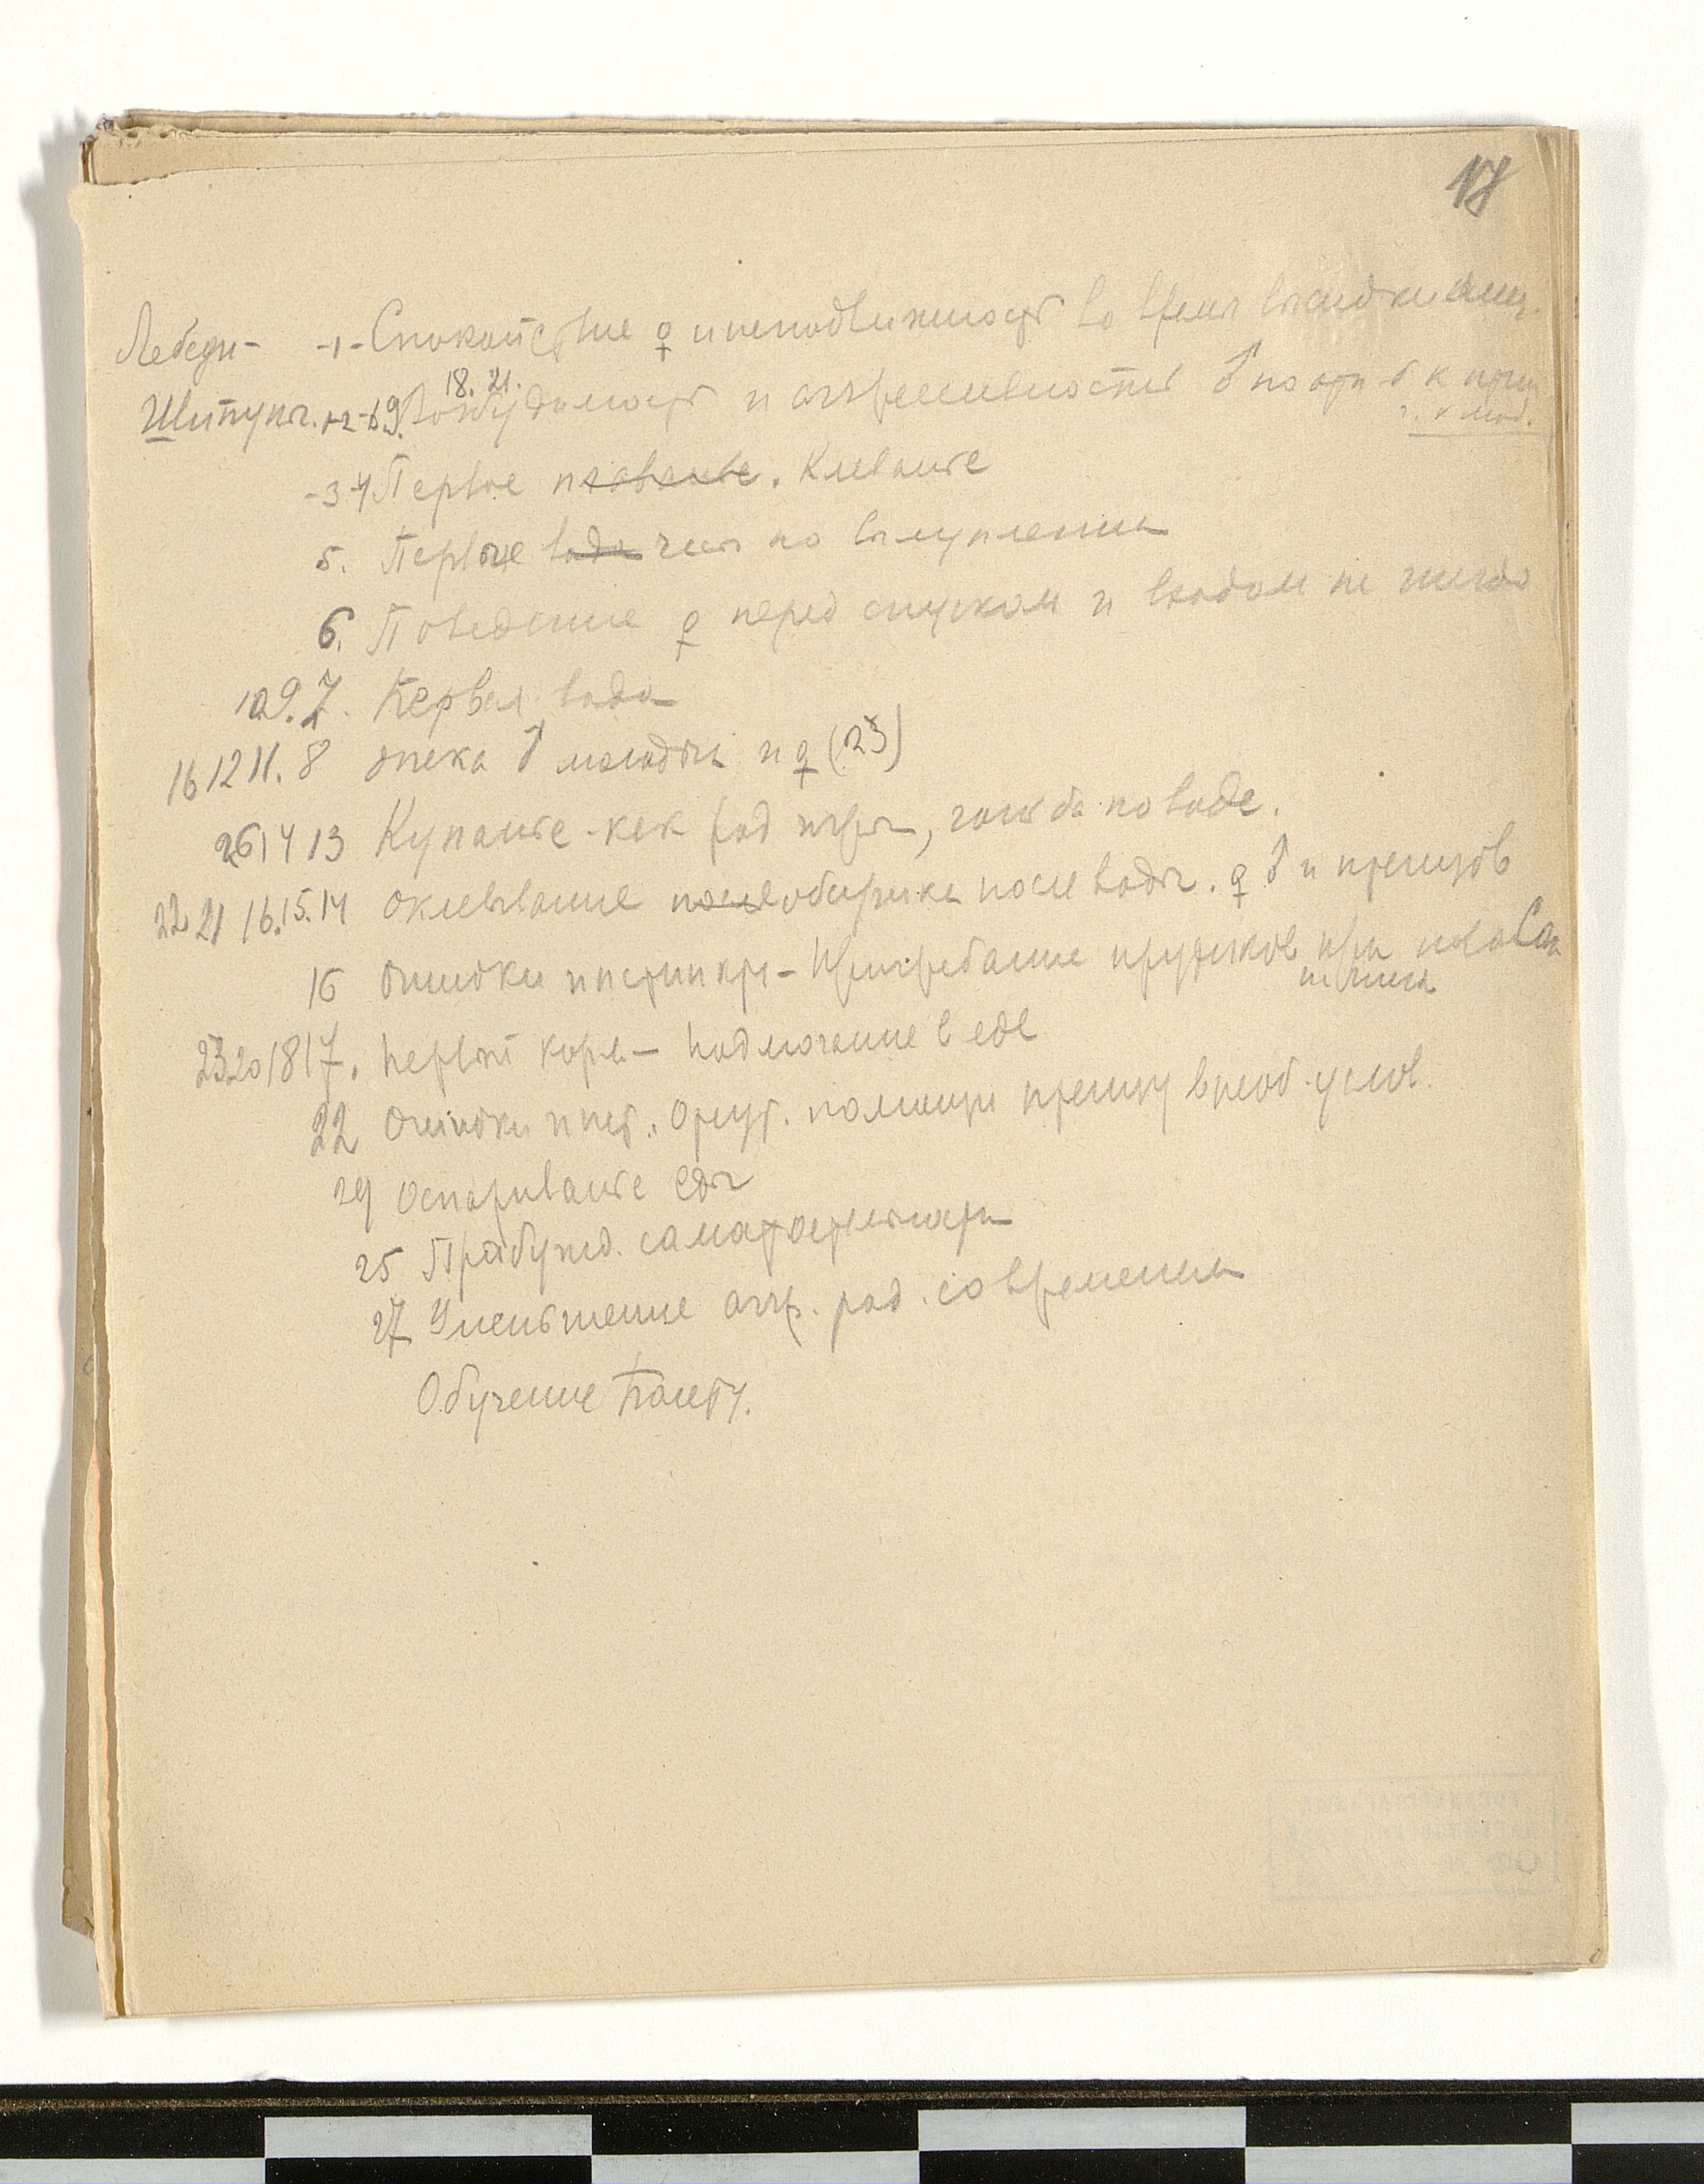 18
Лебеди - -1- Спокойствие ♀ и неподвижность во время высидки яиц.
18. 21.
Шипуны. +2-69. Возбудимость и агрессивность ♂ по отн-ю к птиц.
и к мол.
-3-4 Первое плаванье. Клеванье
5. Первые вода часы по вылуплении
6. Поведение ♀ перед спуском и входом на гнездо
10 9. 7. Первая вода
16 12 11. 8 Опека ♂ молодых и ♀ (23)
26 14 13 Купанье - как род игры, гоньба по воде.
22 21 16. 15. 14 Оклевывание после обсушка после воды. ♀ ♂ и птенцов
16 Ошибки инстинкта - Пригребание прутиков при
23 20 18 17. Первый корм - Подмочание в еде
22 Ошибки инст. Отсут. помощи птенцу в необ. услов.
24 Оспариванье еды
25 Пробужд. самостоятельности
27 Уменьшение агр. род. со временем
Обучение полету.